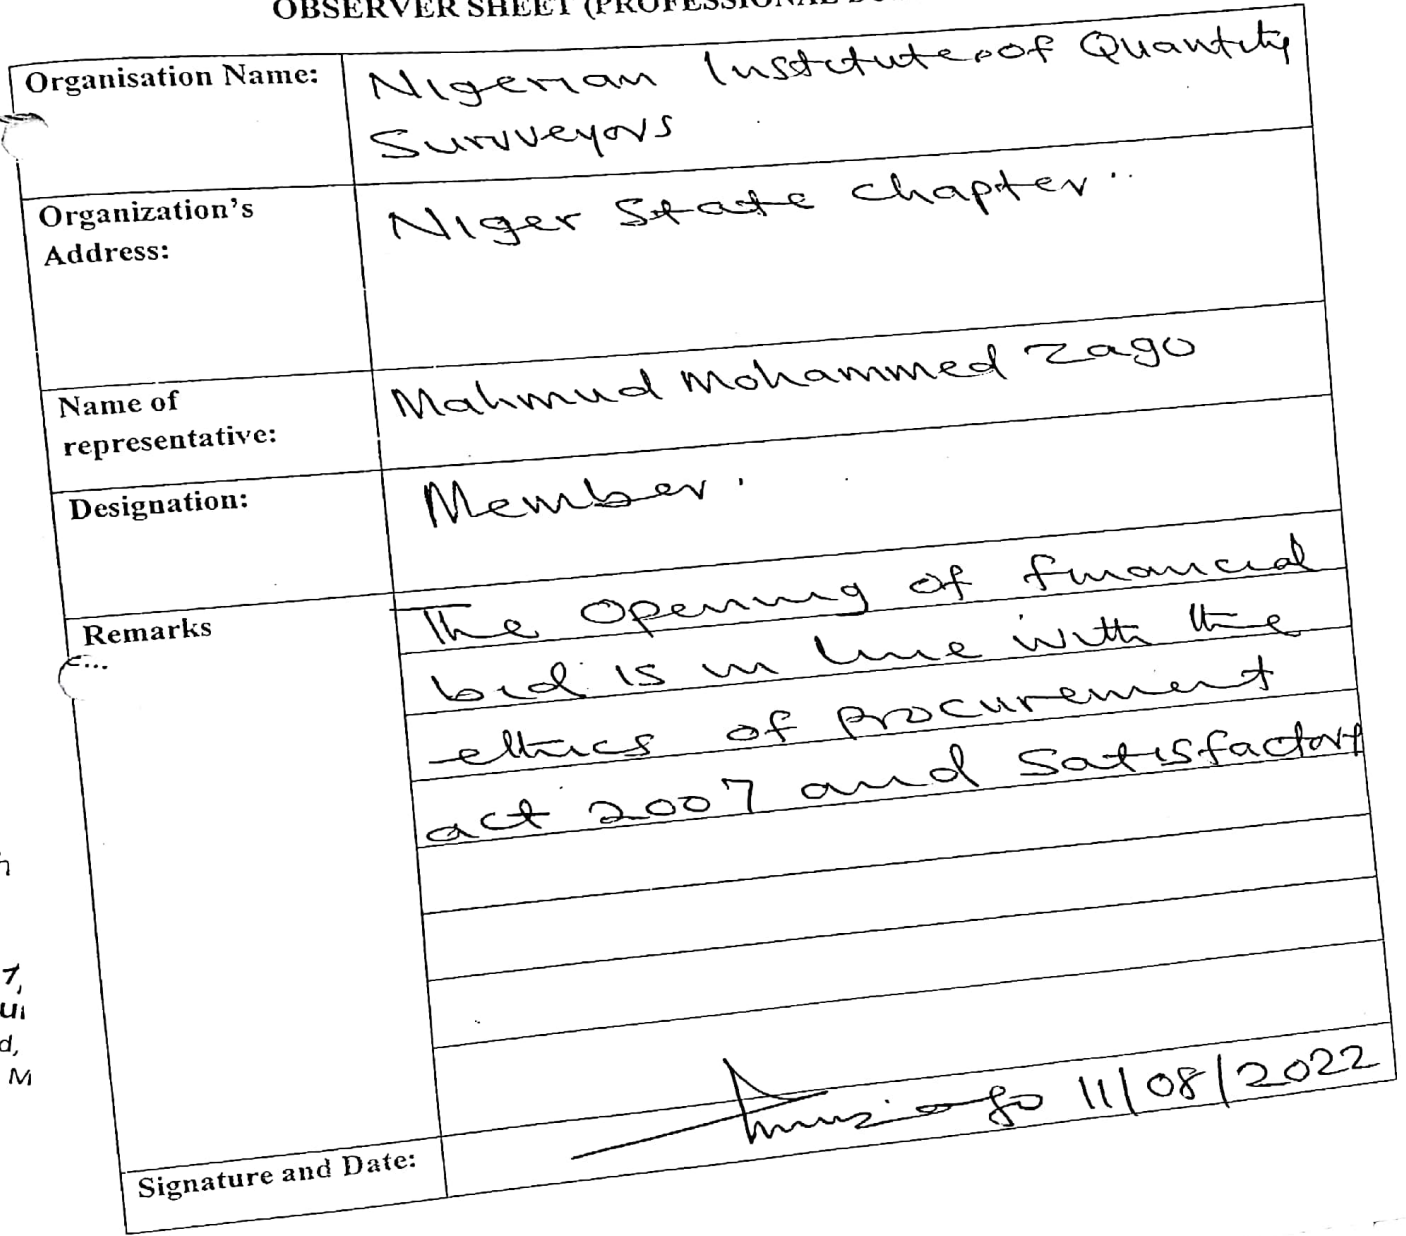 OBSERVER SHEET (PROFESSIONAL
Organisation Name:
Nigerian Institute of Quantity
Surveyors
Organization's
Address:
Niger State Chapter
Name of
representative:
Mahmud Mohammed Zago
Designation:
Member.
Remarks
The Opening of financial
bid is in line with the
ethics of Procurement
act 2007 and Satisfactory
Signature and Date:
11/08/2022
7,
d,
M